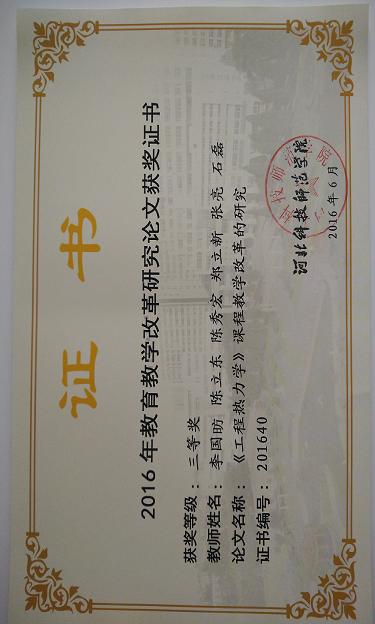 证 书
2016 年教育教学改革研究论文获奖证书
获奖等级：三等奖
教师姓名：李国昉 陈立东 陈秀宏 郑立新 张亮 石磊
论文名称：《工程热力学》课程教学改革的研究
证书编号：201640
河北科技师范学院
2016 年 6 月